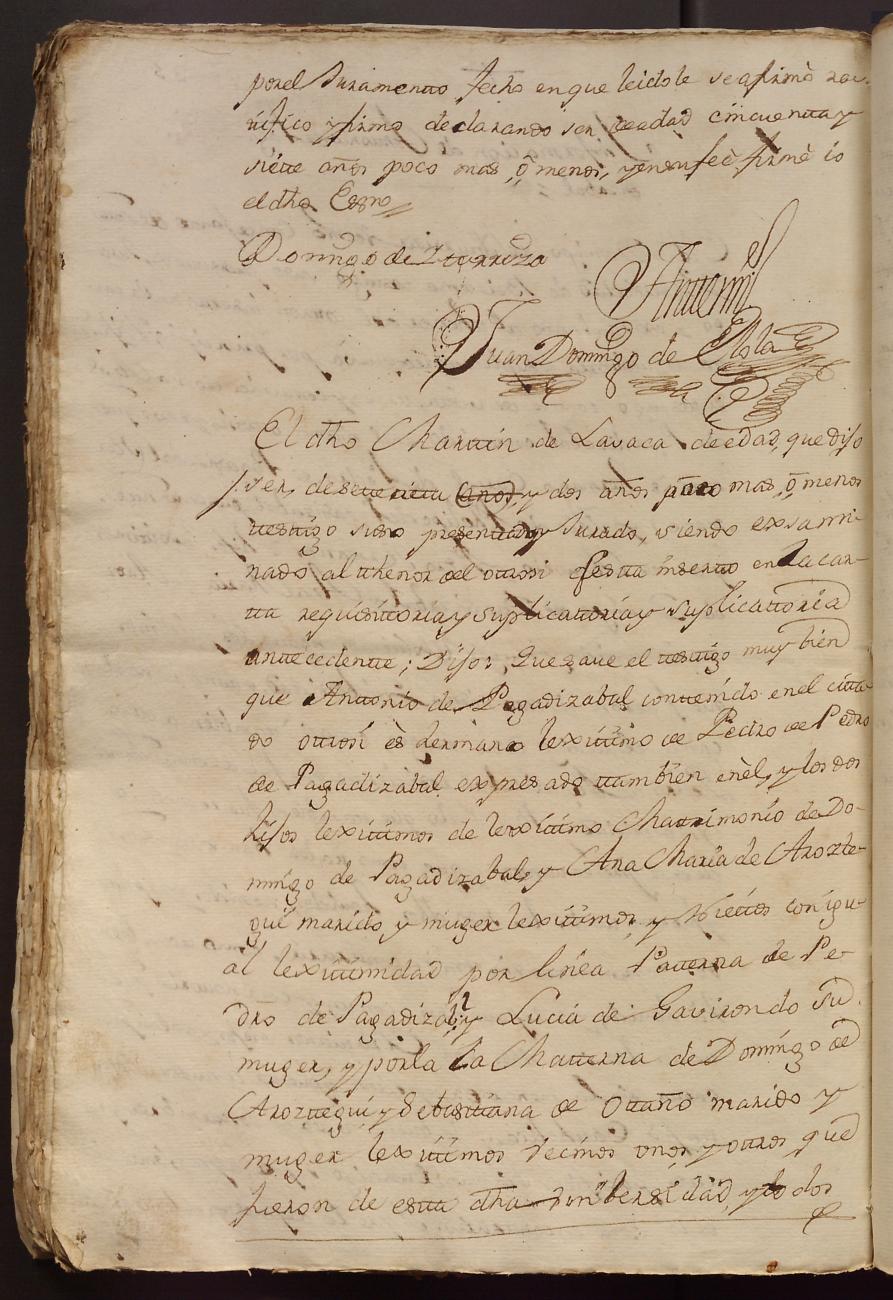 por el Juramentto fecho en que leidole se afirmò ra-
tifico y firmo declarando ser de edad cinquentta y
siette años poco mas, ô menos, y en su feè firmè io
el dho Essno
Domingo de Iturruza
Antemi
Juan Domingo de Elola
El dho Marttin de Lavaca de edad, que dijo
ser, de settentta años, y dos años poco mas, ô menos
testtigo suso presenttado y Jurado, siendo exsami-
nado al thenor del ottrosi questta insertto en la car-
tta requisittoria y suplicattoria y suplicattoria
anttecedentte; Dijo: Que save el testtigo muy bien
que Anttonio de Pagadizabal conttenido en el citta-
do ottrosi ès hermano lexittimo de Pedro de Pedro
de Pagadizabal expresado ttambien en èl, y los dos
hijos lexittimos de lexittimo Mattrimonio de Do-
mingo de Pagadizabal, y Ana Maria de Arozte-
gui marido y muger lexittimos, y Niettos con igu-
al lexittimidad por linea Patterna de Pe-
dro de Pagadizabal y Lucia de Gavirondo su
muger, y por la La Matterna de Domingo de
Arozttegui y Sebasttiana de Ottaño marido y
muger lexittimos vecinos unos, y ottros que
fueron de estta dha Unibersidad, y todos